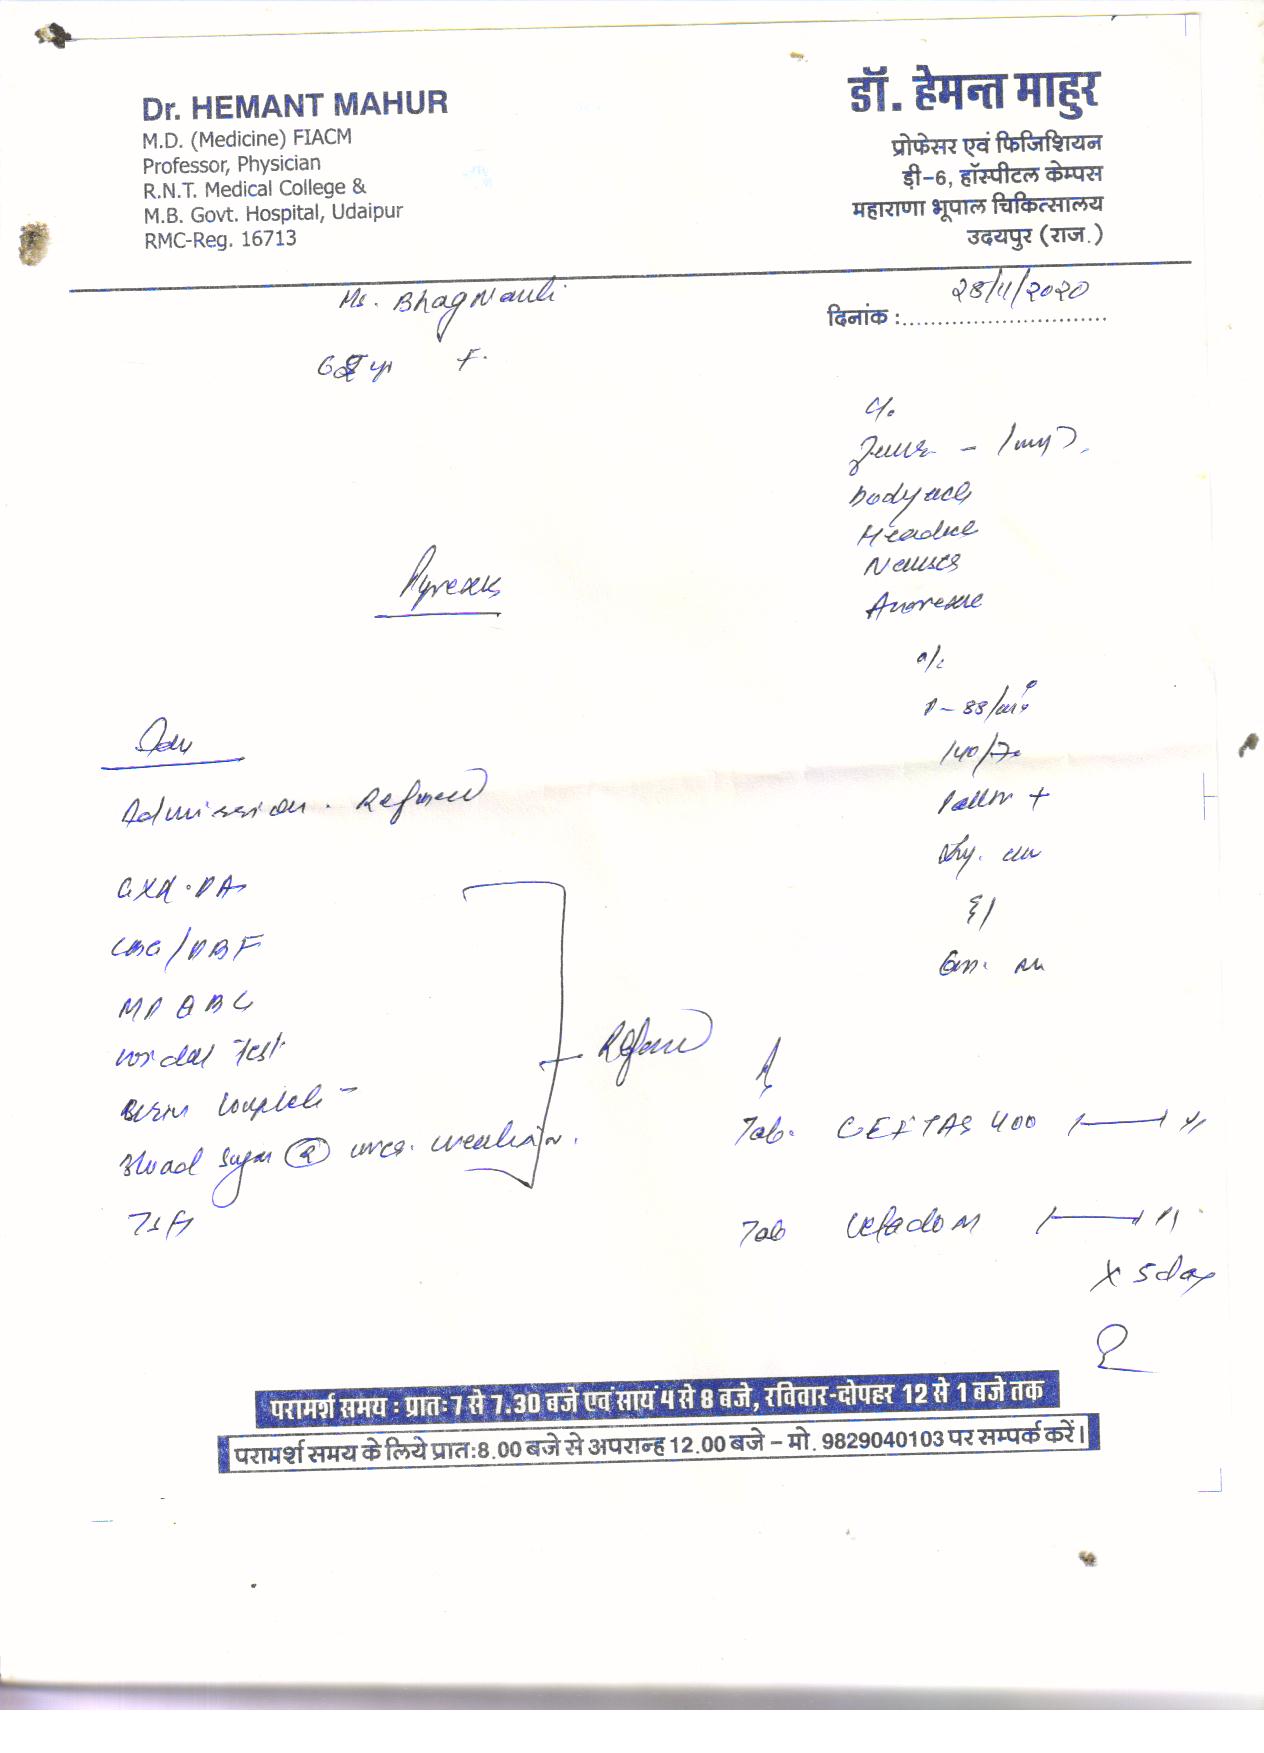 Dr. HEMANT MAHUR
M.D. (Medicine) FIACM
Professor, Physician
R.N.T. Medical College &
M.B. Govt. Hospital, Udaipur
RMC-Reg. 16713
डॉ. हेमन्त माहुर
प्रोफेसर एवं फिजिशियन
डी-6, हॉस्पीटल केम्पस
महाराणा भूपाल चिकित्सालय
उदयपुर (राज.)
दिनांक : २८/११/२०२०
F.
C/o
bodyache
Headache
Nausea
Anorexia
Pyrexia
O/E
P- 88/min
140/70
Pallor +
Adv
Admission. Refused
CXR.PA
CBC/PBF
MP QBC
Widal Test
Urine Complete
Blood Sugar R
Refused
Tab. CEFTAS 400
Tab
x 5 day
परामर्श समय : प्रातः7 से 7.30 बजे एवं सायं 4 से 8 बजे, रविवार-दोपहर 12 से 1 बजे तक
परामर्श समय के लिये प्रातः8.00 बजे से अपरान्ह 12.00 बजे – मो. 9829040103 पर सम्पर्क करें।